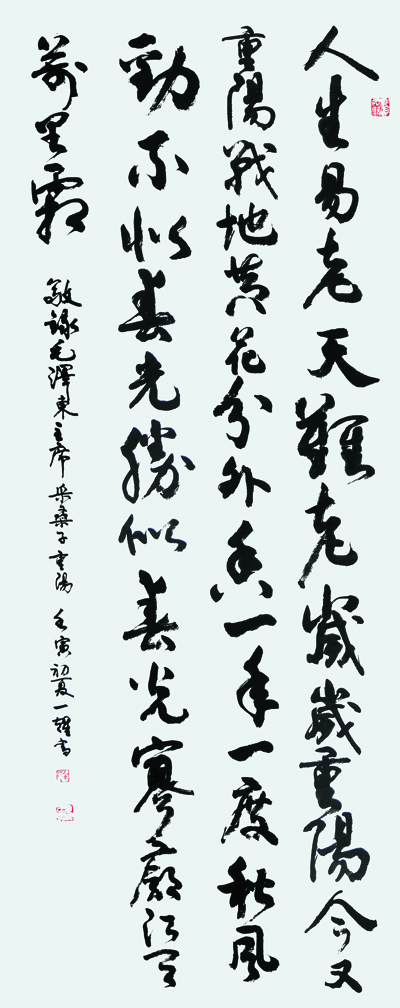 人生易老天難老歲歲重陽今又
重陽戰地黃花分外香一年一度秋風
勁不似春光勝似春光寥廓江天
萬里霜
敬錄毛澤東主席采桑子重陽壬寅初夏一耀書